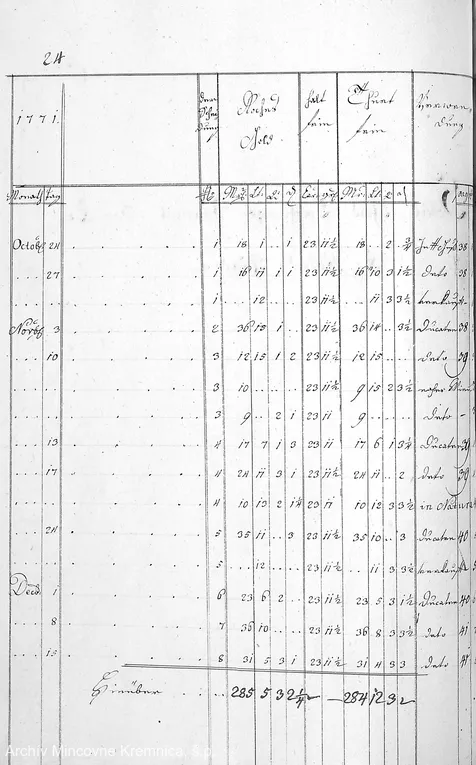 24
1771. der Schei dung Rohes Gold halt fein Thuet fein Verwen dung
Monath Tag N. Mk Lt. q. d Car. gr. Mk Lt. q d
Octob 24 1 18 1 .. 1 23 11½ 18 .. 2 ¾ 38
.. 27 1 16 11 1 1 23 11½ 16 10 3 1½ deto 38
1 .. 12 .. .. 23 11½ .. 11 3 3½ verkauft
Novb 3 2 36 15 1 .. 23 11½ 36 14 .. 3½ Ducaten 38
.. 10 3 12 15 1 2 23 11½ 12 15 .. .. deto 39
3 10 .. .. .. 23 11½ 9 15 2 3½
3 9 .. 2 1 23 11 9 .. .. .. deto -
.. 13 4 17 7 1 3 23 11 17 6 1 3¼ Ducaten 39
.. 17 4 24 11 3 1 23 11½ 24 11 .. 2 deto 39
4 10 13 2 1¼ 23 11 10 12 3 3½ in Natura
.. 24 5 35 11 .. 3 23 11½ 35 10 .. 3 Ducaten 40
5 .. 12 .. .. 23 11½ .. 11 3 3½ verkauft
Decb 1 6 23 6 2 .. 23 11½ 23 5 3 1½ Ducaten 40
.. 8 7 36 10 .. .. 23 11½ 36 8 3 3½ deto 41
.. 15 8 31 5 3 1 23 11½ 31 4 3 3 deto 41
Hinüber .. 285 5 3 2¼ — 284 12 3 2
Archív Mincovne Kremnica, š.p.